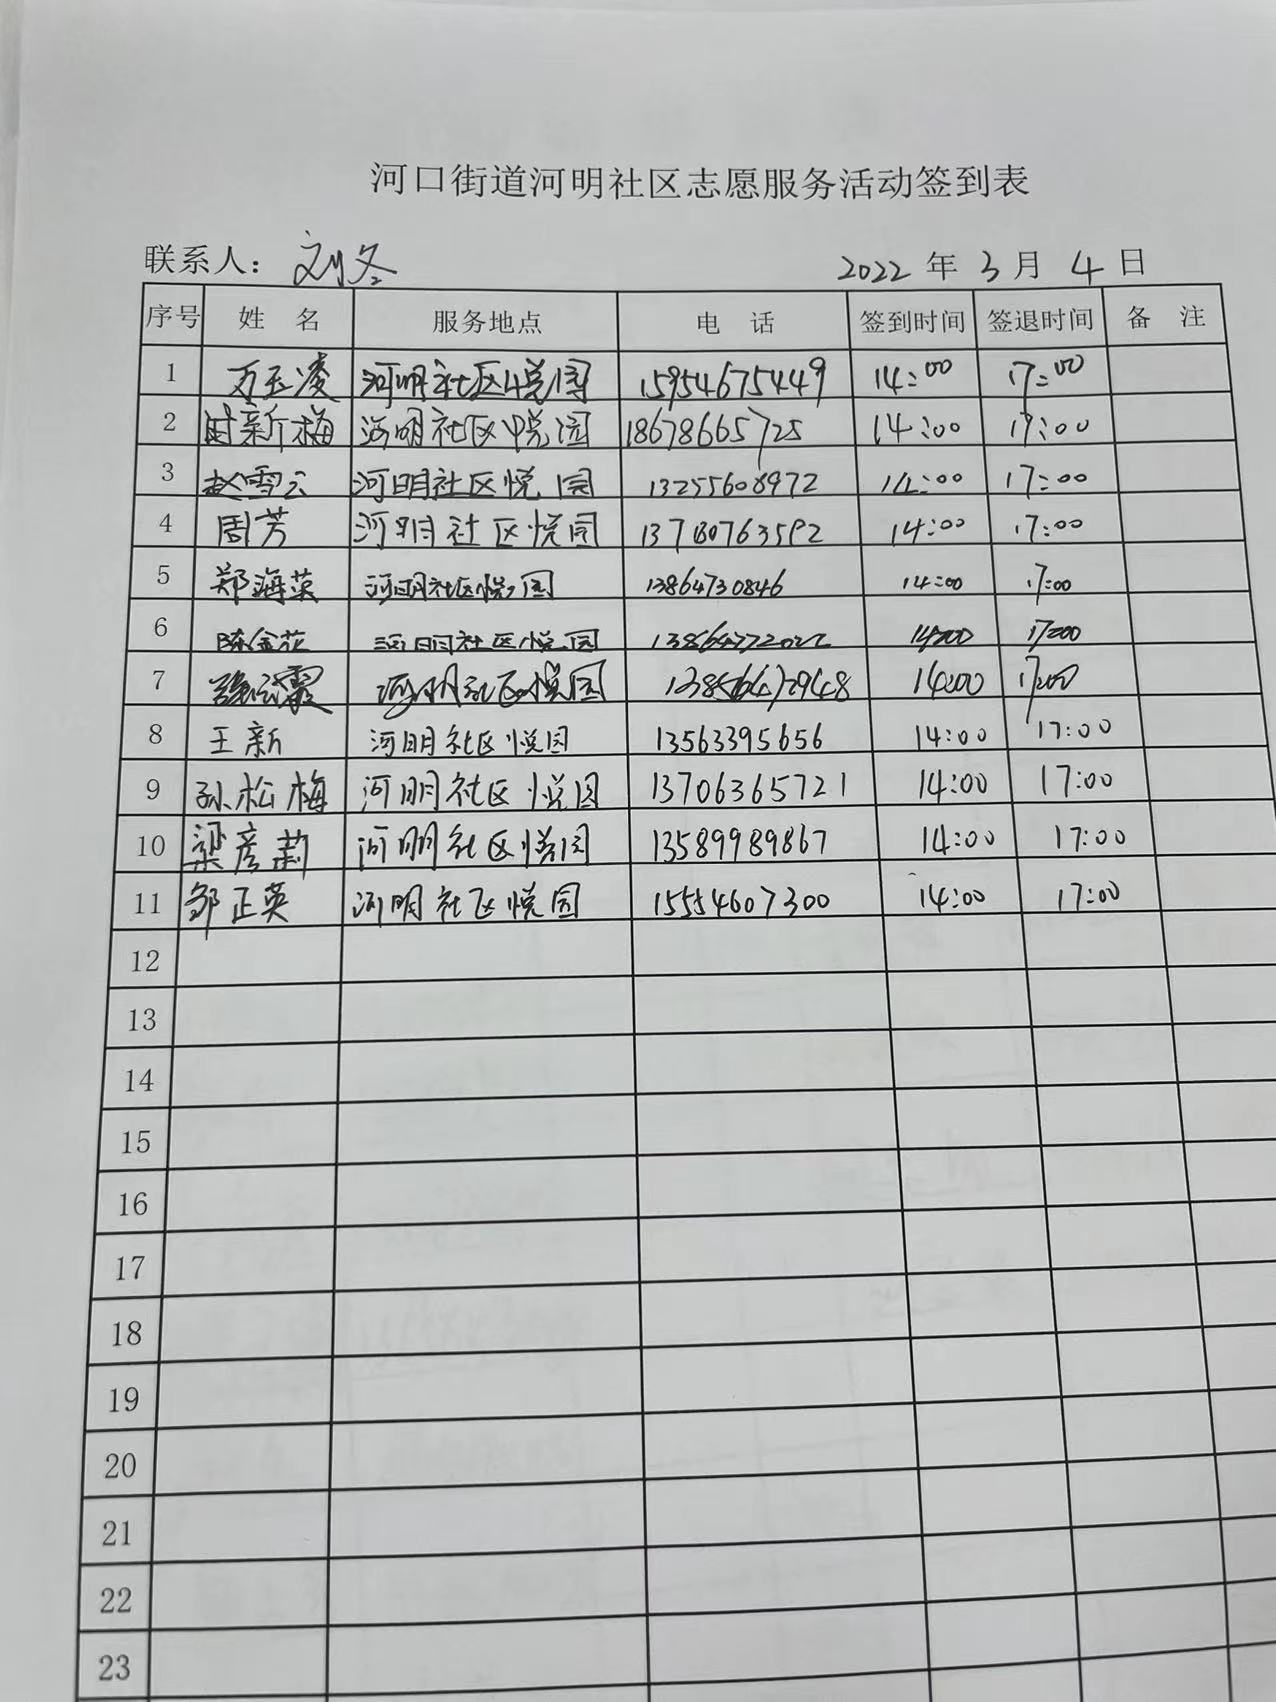 河口街道河明社区志愿服务活动签到表
联系人： 刘冬 2022 年 3 月 4 日
序号 姓 名 服务地点 电 话 签到时间 签退时间 备 注
1 万玉凌 河明社区悦园 15954675449 14:00 17:00
2 时新梅 河明社区悦园 18678665725 14:00 17:00
3 赵雪云 河明社区悦园 13255608972 14:00 17:00
4 周芳 河明社区悦园 14:00 17:00
5 郑海英 河明社区悦园 13864730846 14:00 17:00
6 陈金花 河明社区悦园 14:00 17:00
7 河明社区悦园 14:00 17:00
8 王新 河明社区悦园 13563395656 14:00 17:00
9 孙松梅 河明社区悦园 13706365721 14:00 17:00
10 梁彦莉 河明社区悦园 13589989867 14:00 17:00
11 邹正英 河明社区悦园 15554607300 14:00 17:00
12
13
14
15
16
17
18
19
20
21
22
23